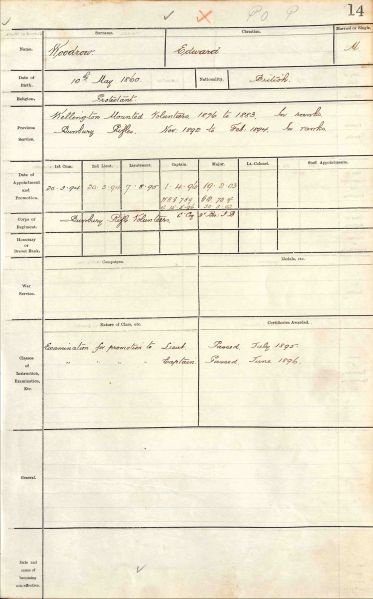 P O P 14
Surname. Christian. Married or Single.
Name. Woodrow. Edward M.
Date of Birth. 10th May 1860. Nationality. British.
Religion. Protestant.
Previous Service. Wellington Mounted Volunteers, 1876 to 1883. In ranks.
Bunbury Rifles. Nov. 1892 to Feb. 1894. In ranks.
Date of Appointment and Promotion.
1st Com. 2nd Lieut. Lieutenant. Captain. Major. Lt.-Colonel. Staff Appointments.
20-3-94 20-3-94 7-8-95 1-4-96 19-2-03
Corps or Regiment. Bunbury Rifle Volunteers.
Honorary or Brevet Rank.
Campaigns. Medals, etc.
War Service.
Nature of Class, etc. Certificates Awarded.
Classes of Instruction, Examination, Etc.
Examination for promotion to Lieut. Passed July 1895.
" " " " Captain. Passed June 1896.
General.
Date and cause of becoming non-effective.